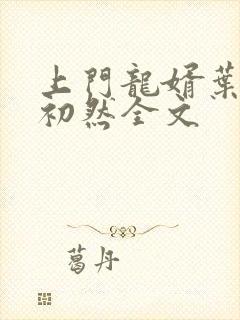 上門龍婿葉
初然全文
葛丹